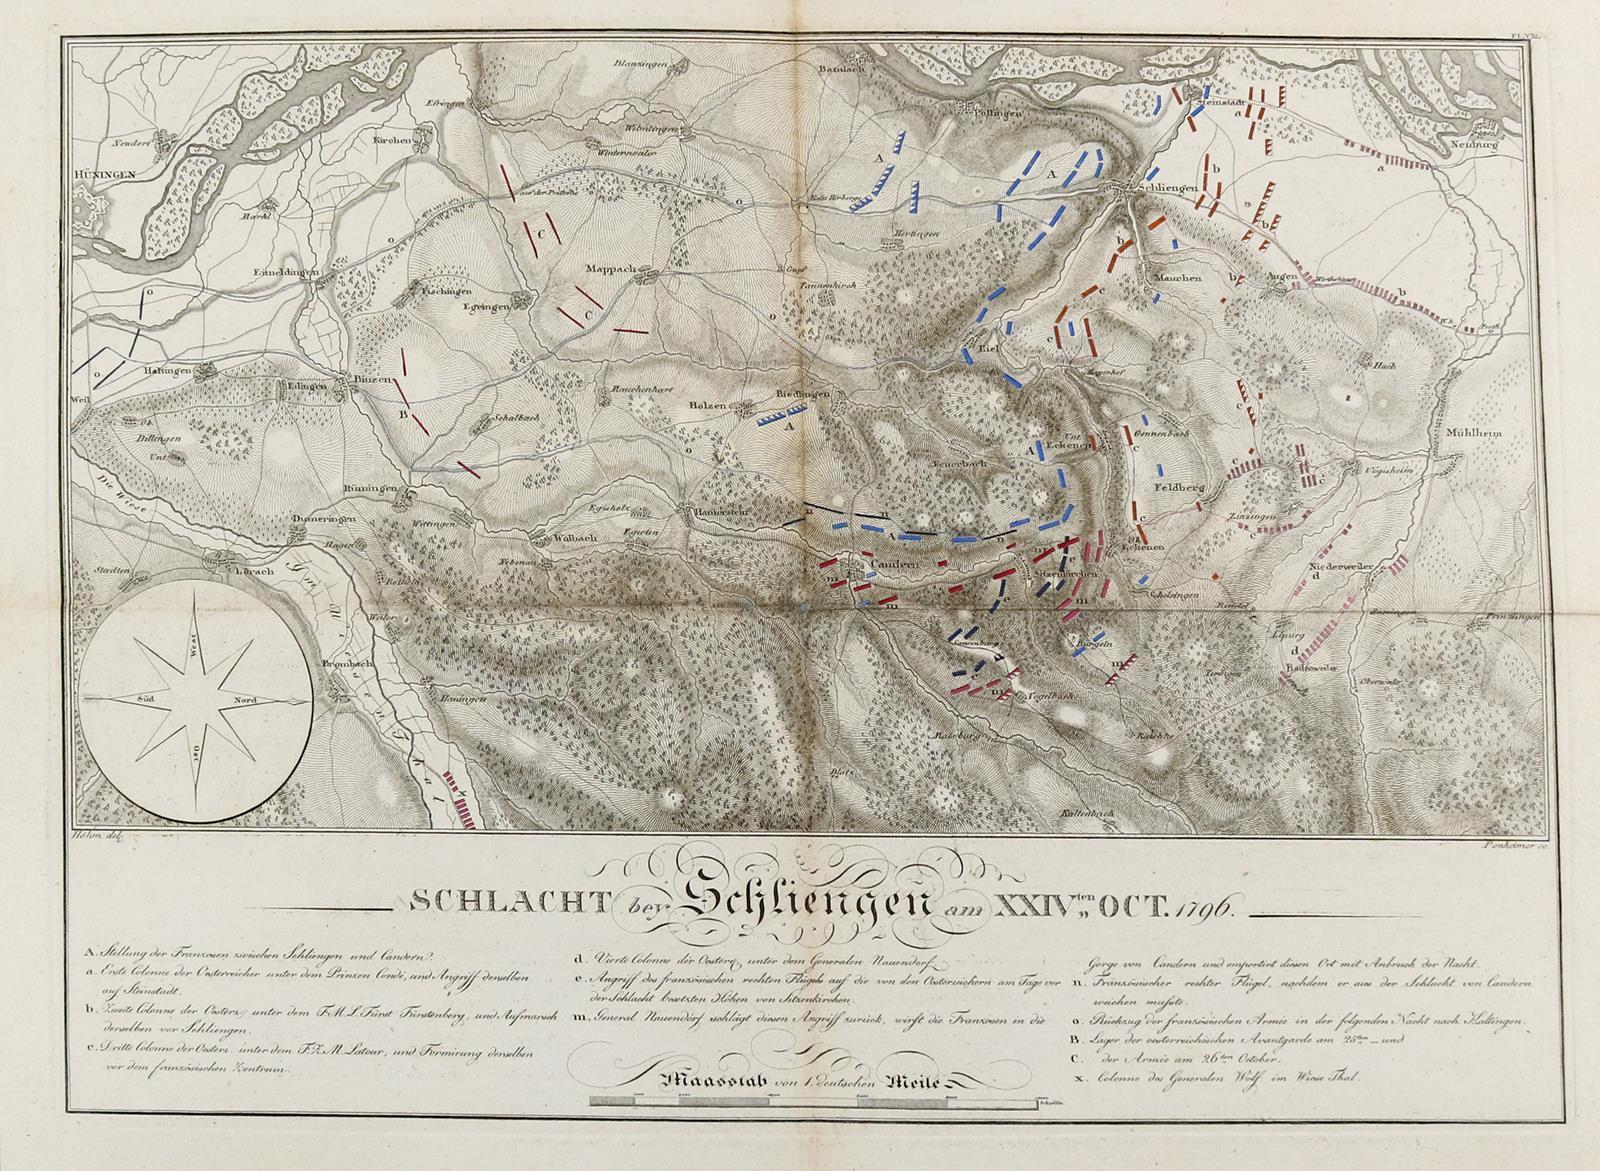 PL. VIII.
Blanzingen
Bamlach
Efringen
Steinstadt
a
Neudorf
Kirchen
Wintersweiler
Neuburg
HÜNINGEN
A
A
b
a
Schliengen
Markt
Kalte Herberg
o
Hertingen
C
b
b
Mauchen
Augen
b
Eimeldingen
Mappach
Tannenkirch
Fischingen
Egringen
C
c
o
o
Riel
Haltingen
Binzen
Hach
Weil
Holzen
Riedlingen
B
A
Schalbach
c
c
Gennenbach
Mühlheim
Dillingen
Feuerbach
A
Unt.
Eckenen
Vögisheim
Feldberg
Die Wiese
Rümingen
Zinzingen
Hamerstein
n
n
Wittingen
Wolbach
A
Candern
Sitzenkirchen
Niederweiler
d
Hagen
Nebenau
Stædten
Lörach
m
m
e
Schelsingen
Weiler
Bürgeln
d
Badenweiler
Oberweiler
Brombach
m
Vogelbach
Hauingen
West
Süd
Nord
Ost
Malsburg
Kaltenbach
x
Höhm del.
SCHLACHT bey Schliengen am XXIVten OCT. 1796.
A. Stellung der Franzosen zwischen Schliengen und Candern.
a. Erste Colonne der Oesterreicher unter dem Prinzen Condé, und Angriff denselben
auf Steinstadt.
b. Zweite Colonne der Oesterr. unter dem F.M.L. Fürst Fürstenberg, und Aufmarsch
derselben vor Schliengen.
c. Dritte Colonne der Oesterr. unter dem F.Z.M. Latour, und Formirung derselben
vor dem französischen Zentrum.
d. Vierte Colonne der Oesterr. unter dem Generalen Nauendorf.
e. Angriff des französischen rechten Flügels auf die von den Oesterreichern am Tage vor
der Schlacht besetzten Höhen von Sitzenkirchen.
m. General Nauendorf schlägt diesen Angriff zurück, wirft die Franzosen in die
Gorge von Candern und emportirt diesen Ort mit Anbruch der Nacht.
n. Französischer rechter Flügel, nachdem er aus der Schlucht von Candern
weichen musste.
o. Rückzug der französischen Armée in der folgenden Nacht nach Haltingen.
B. Lager der oesterreichischen Avantgarde am 25ten und
C. der Armée am 26ten October.
x. Colonne des Generalen Wolf im Wiese Thal.
Maasstab von 1. deutschen Meile